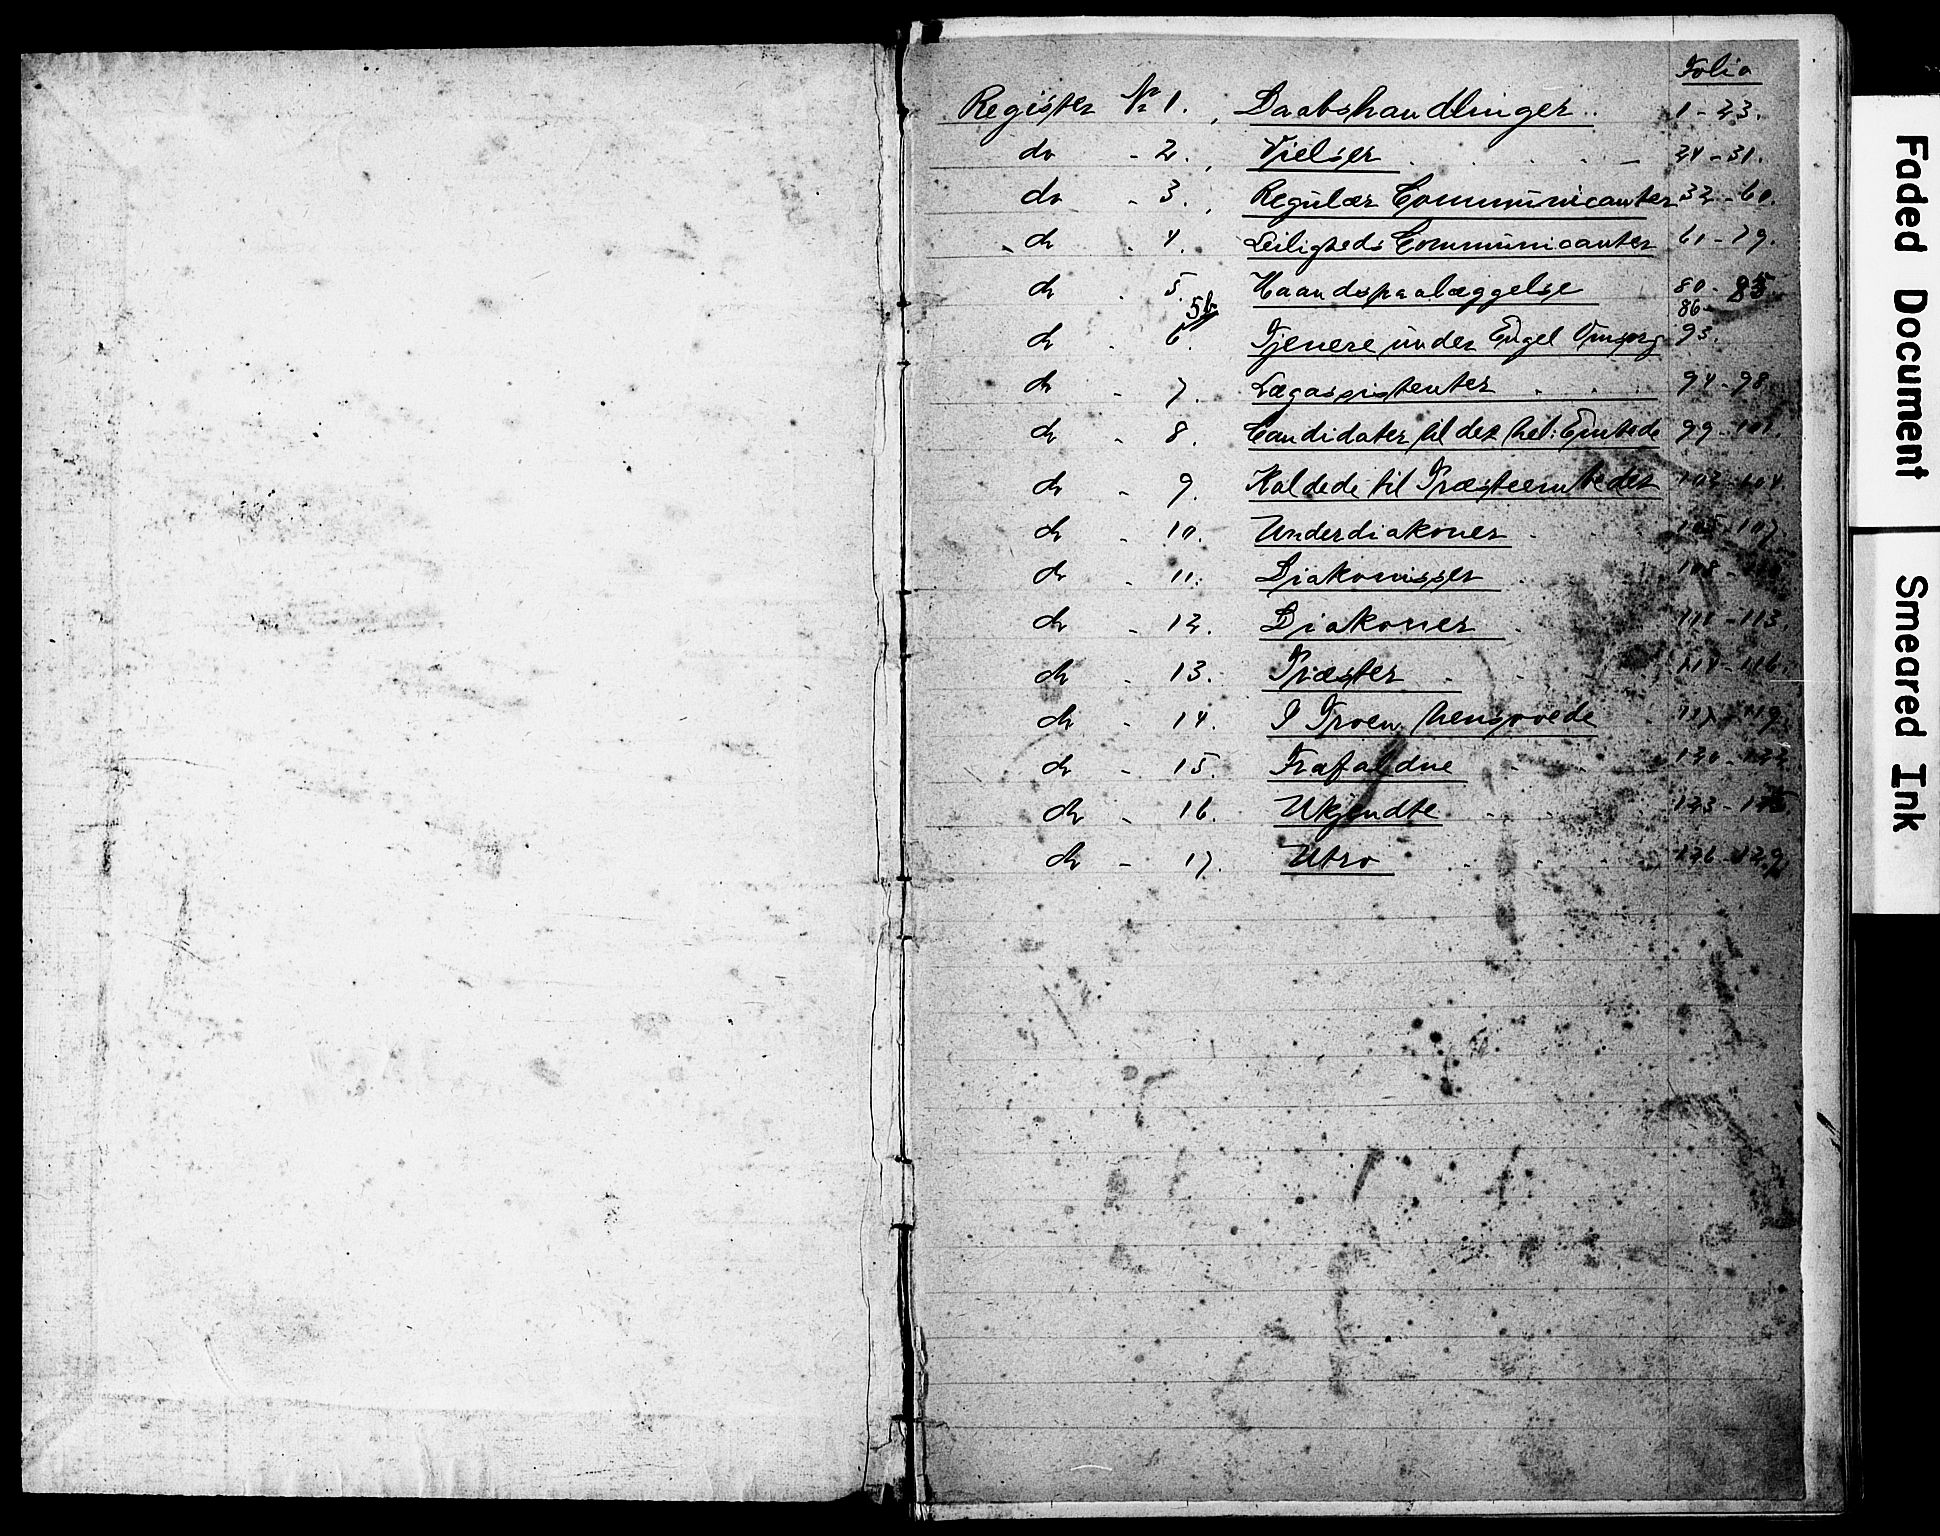 Folio
Register № 1. Daabshandlinger 1-23.
do - 2. Vielser 24-31.
do - 3. Regulær Communicanter 32-60.
do - 4. Leiligheds Communicanter 61-79.
do - 5. Haandspaalæggelse 80-85
5b 86-
do - 6. Tjenere under Engel Omsorg 93.
do - 7. Lægassistenter 94-98.
do - 8. Candidater til det hel: Embede 99-102.
do - 9. Kaldede til Præsteembedet 103-104.
do - 10. Underdiakoner 105-107.
do - 11. Diakonisser 108-
do - 12. Diakoner 110-113.
do - 13. Præster 114-116.
do - 14. I Troen hensovede 117-119.
do - 15. Frafaldne 120-122
do - 16. Ukjendte 123-125
do - 17. Utro 126-129
Faded Document
Smeared Ink